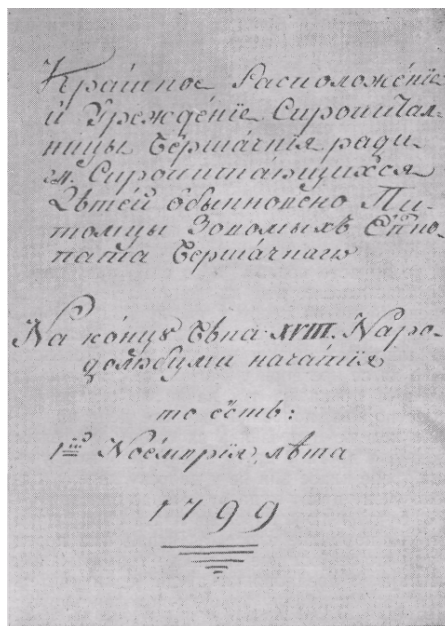 Кра́ткое Расположе́нїе
и́ Урежде́нїе Сиропитал-
ницы Верша́чкїя ради
Сиропита́ющихся
Дѣтей Обыкновено Пи-
томцы Зовомыхъ Епко-
пата Верша́чкаго
На ко́нцу Вѣка XVIII. Наро-
долюбцами начатїя
то є́сть:
1го Ное́мврїя, лѣта
1799